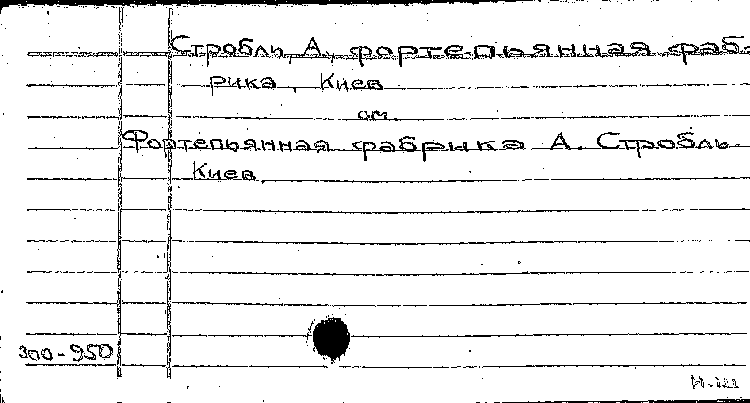 Стробль, А., фортепьянная фаб-
рика, Киев
см.
Фортепьянная фабрика А. Стробль.
Киев.
300-950